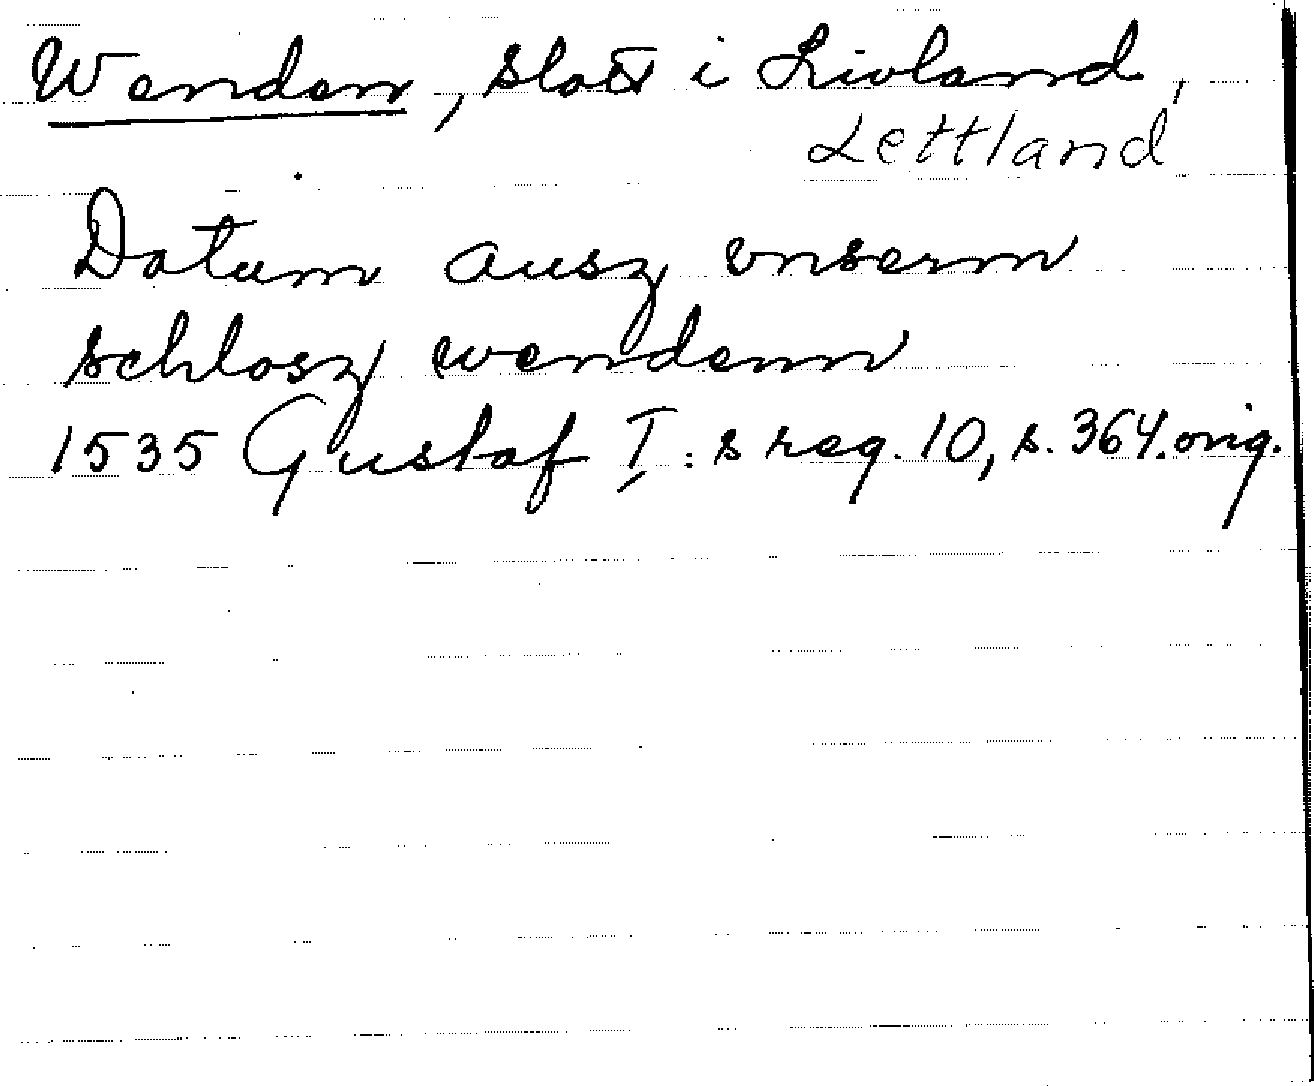 Wenden, slott i Livland,
Lettland
Datum ausz vnserm
schlosz wendenn
1535 Gustaf I:s reg. 10, s. 364. orig.